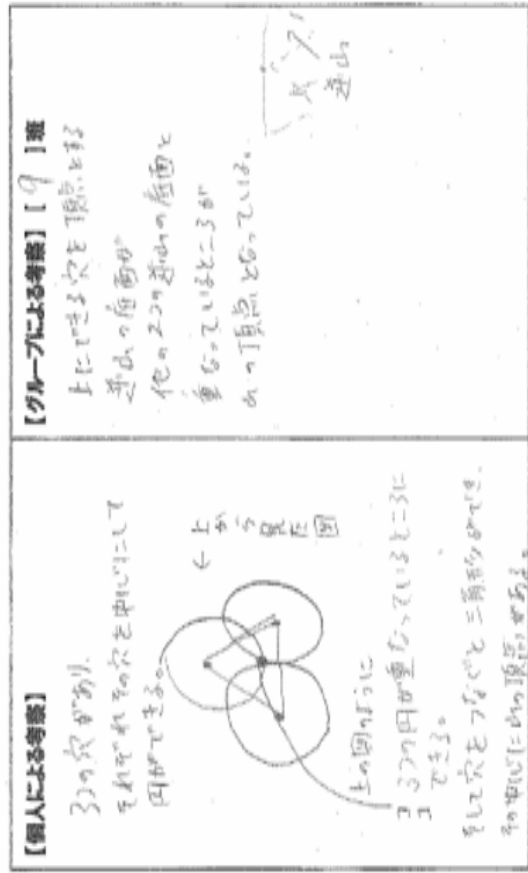 【個人による考察】
3つの穴があり、
それぞれその穴を中心にして
円ができる。
←上から見た図
上の図のように
3つの円が重なっているところに
できる。
そして穴をつなぐと三角形ができ、
その中心に山の頂点がある。
【グループによる考察】【 9 】班
上にできる穴を頂点とする
逆山の底面が
他の2つの逆山の底面と
重なっているところが
山の頂点となっている。
逆山